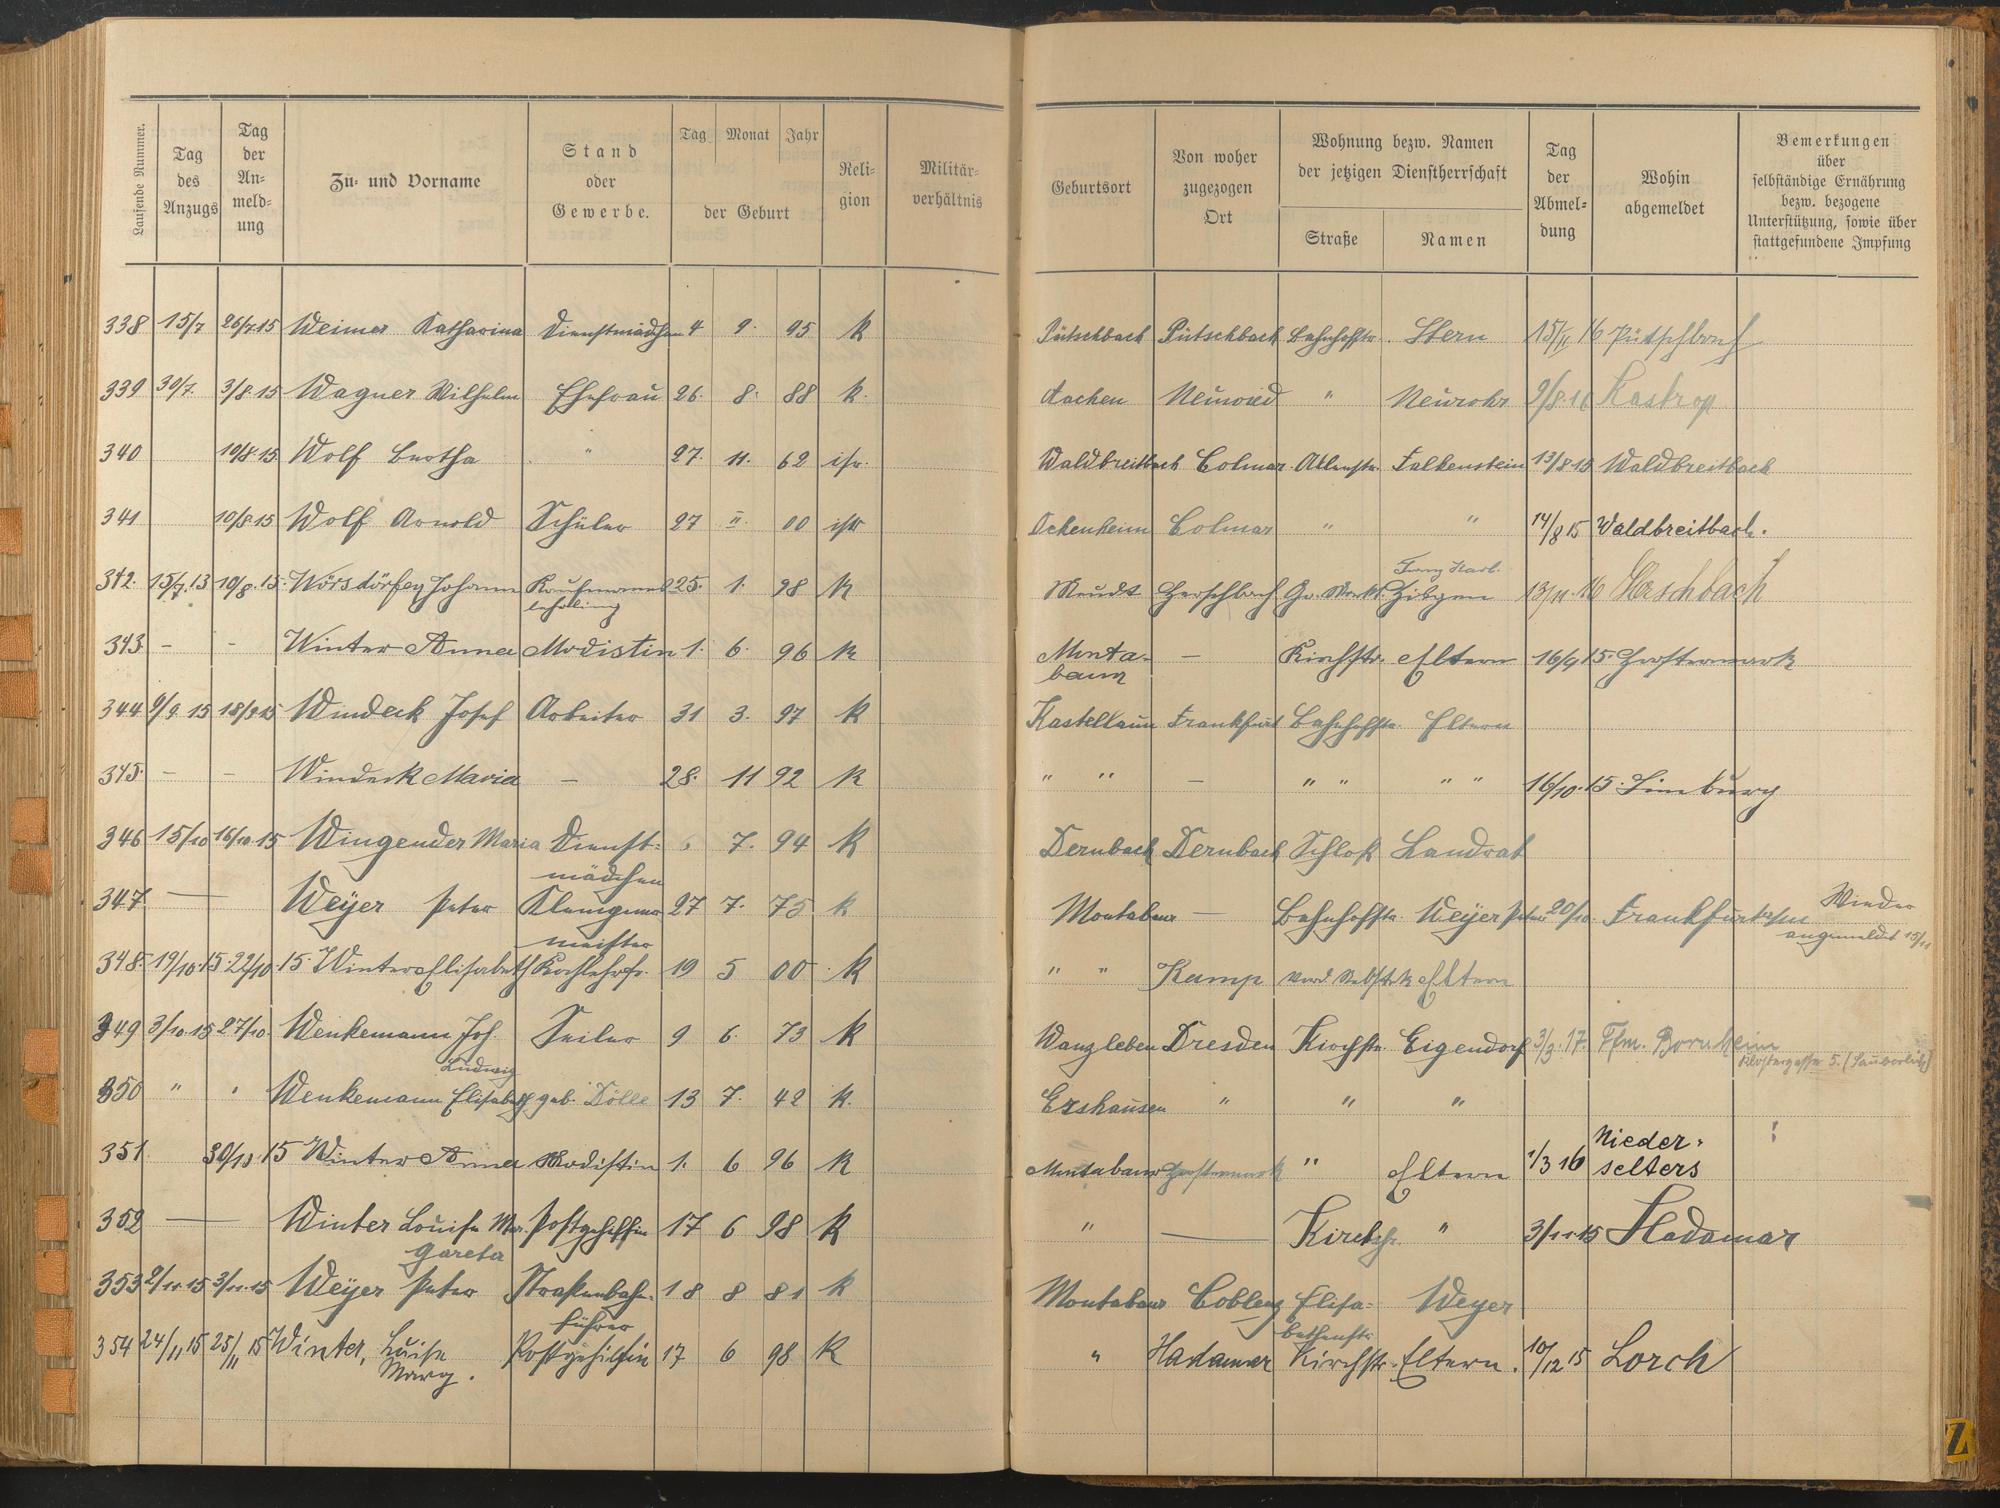 Laufende Nummer.
Tag des Anzugs
Tag der An- meld- ung
Zu- und Vorname
Stand oder Gewerbe.
Tag Monat Jahr der Geburt
Reli- gion
Militär- verhältnis
Geburtsort
Von woher zugezogen Ort
Wohnung bezw. Namen der jetzigen Dienstherrschaft
Straße Namen
Tag der Abmel- dung
Wohin abgemeldet
Bemerkungen über selbständige Ernährung bezw. bezogene Unterstützung, sowie über stattgefundene Impfung
338 15/7 26/7.15 Weimer Katharina Dienstmädchen 4 9. 95 k Pütschbach Pütschbach Bahnhofstr. Stern 15/II 16 Pütschbach
339 30/7. 3/8.15 Wagner Wilhelm Ehefrau 26. 8. 88 k. Aachen Neuwied " Neurohr 9/8.16 Kastrop
340 10/8.15 Wolf Bertha " 27. 11. 62 isr. Waldbreitbach Colmar Falkenstein 13/8 15 Waldbreitbach
341 10/8.15 Wolf Arnold Schüler 27 II. 00 isr Ockenheim Colmar " " 14/8 15 Waldbreitbach.
Franz Karl.
342. 15/7.13 10/8.15. Wörsdörfer Johann Kaufmanns 25. 1. 98 k Meudt Herschbach Gr. Markt Zitzen 13/11.16 Herschbach
lehrling
343. - - Winter Anna Modistin 1. 6. 96 k Monta- - Kirchstr. Eltern 16/9 15.
baur
344 9/9 15 18/9 15 Windeck Josef Arbeiter 31 3. 97 k Kastellaun Frankfurt Bahnhofstr. Eltern
345. - - Windeck Maria - 28. 11 92 k " " - " " " " 16/10.15. Limburg
346 15/10 16/10.15 Wingender Maria Dienst- 6 7. 94 k Dernbach Dernbach Schloß Landrat
mädchen
347. — Weyer Peter Klempner 27 7. 75 k Montabaur — Bahnhofstr. Weyer Peter 20/10. Frankfurt a/m Wieder
meister angemeldet 15/11
348. 19/10.15. 22/10.15. Winter Elisabeth Kochlehrfr. 19 5 00 k " " Kamp Eltern
349 3/10.15 27/10. Wenkemann Joh. Seiler 9 6. 73 k Wanzleben Dresden Kirchstr. Eigendorf 3/3.17. Ffm. Bornheim
Ludwig
350 " " Wenkemann Elisabeth geb. Dölle 13 7. 42 k. Ershausen " " "
351. 30/10.15 Winter Anna Modistin 1. 6 96 k Montabaur " Eltern 1/3 16 Nieder-
selters
352 — Winter Louise Mar- Postgehilfin 17 6 98 k " — Kirchstr. " 3/11.15 Hadamar
gareta
353 2/11.15 3/11.15 Weyer Peter Straßenbahn- 18 8 81 k Montabaur Coblenz Elisa- Weyer
führer bethenstr.
354 24/11 15 25/11 15 Winter, Luise Postgehilfin 17 6 98 k " Hadamar Kirchstr. Eltern. 10/12 15 Lorch
Marg.
Z